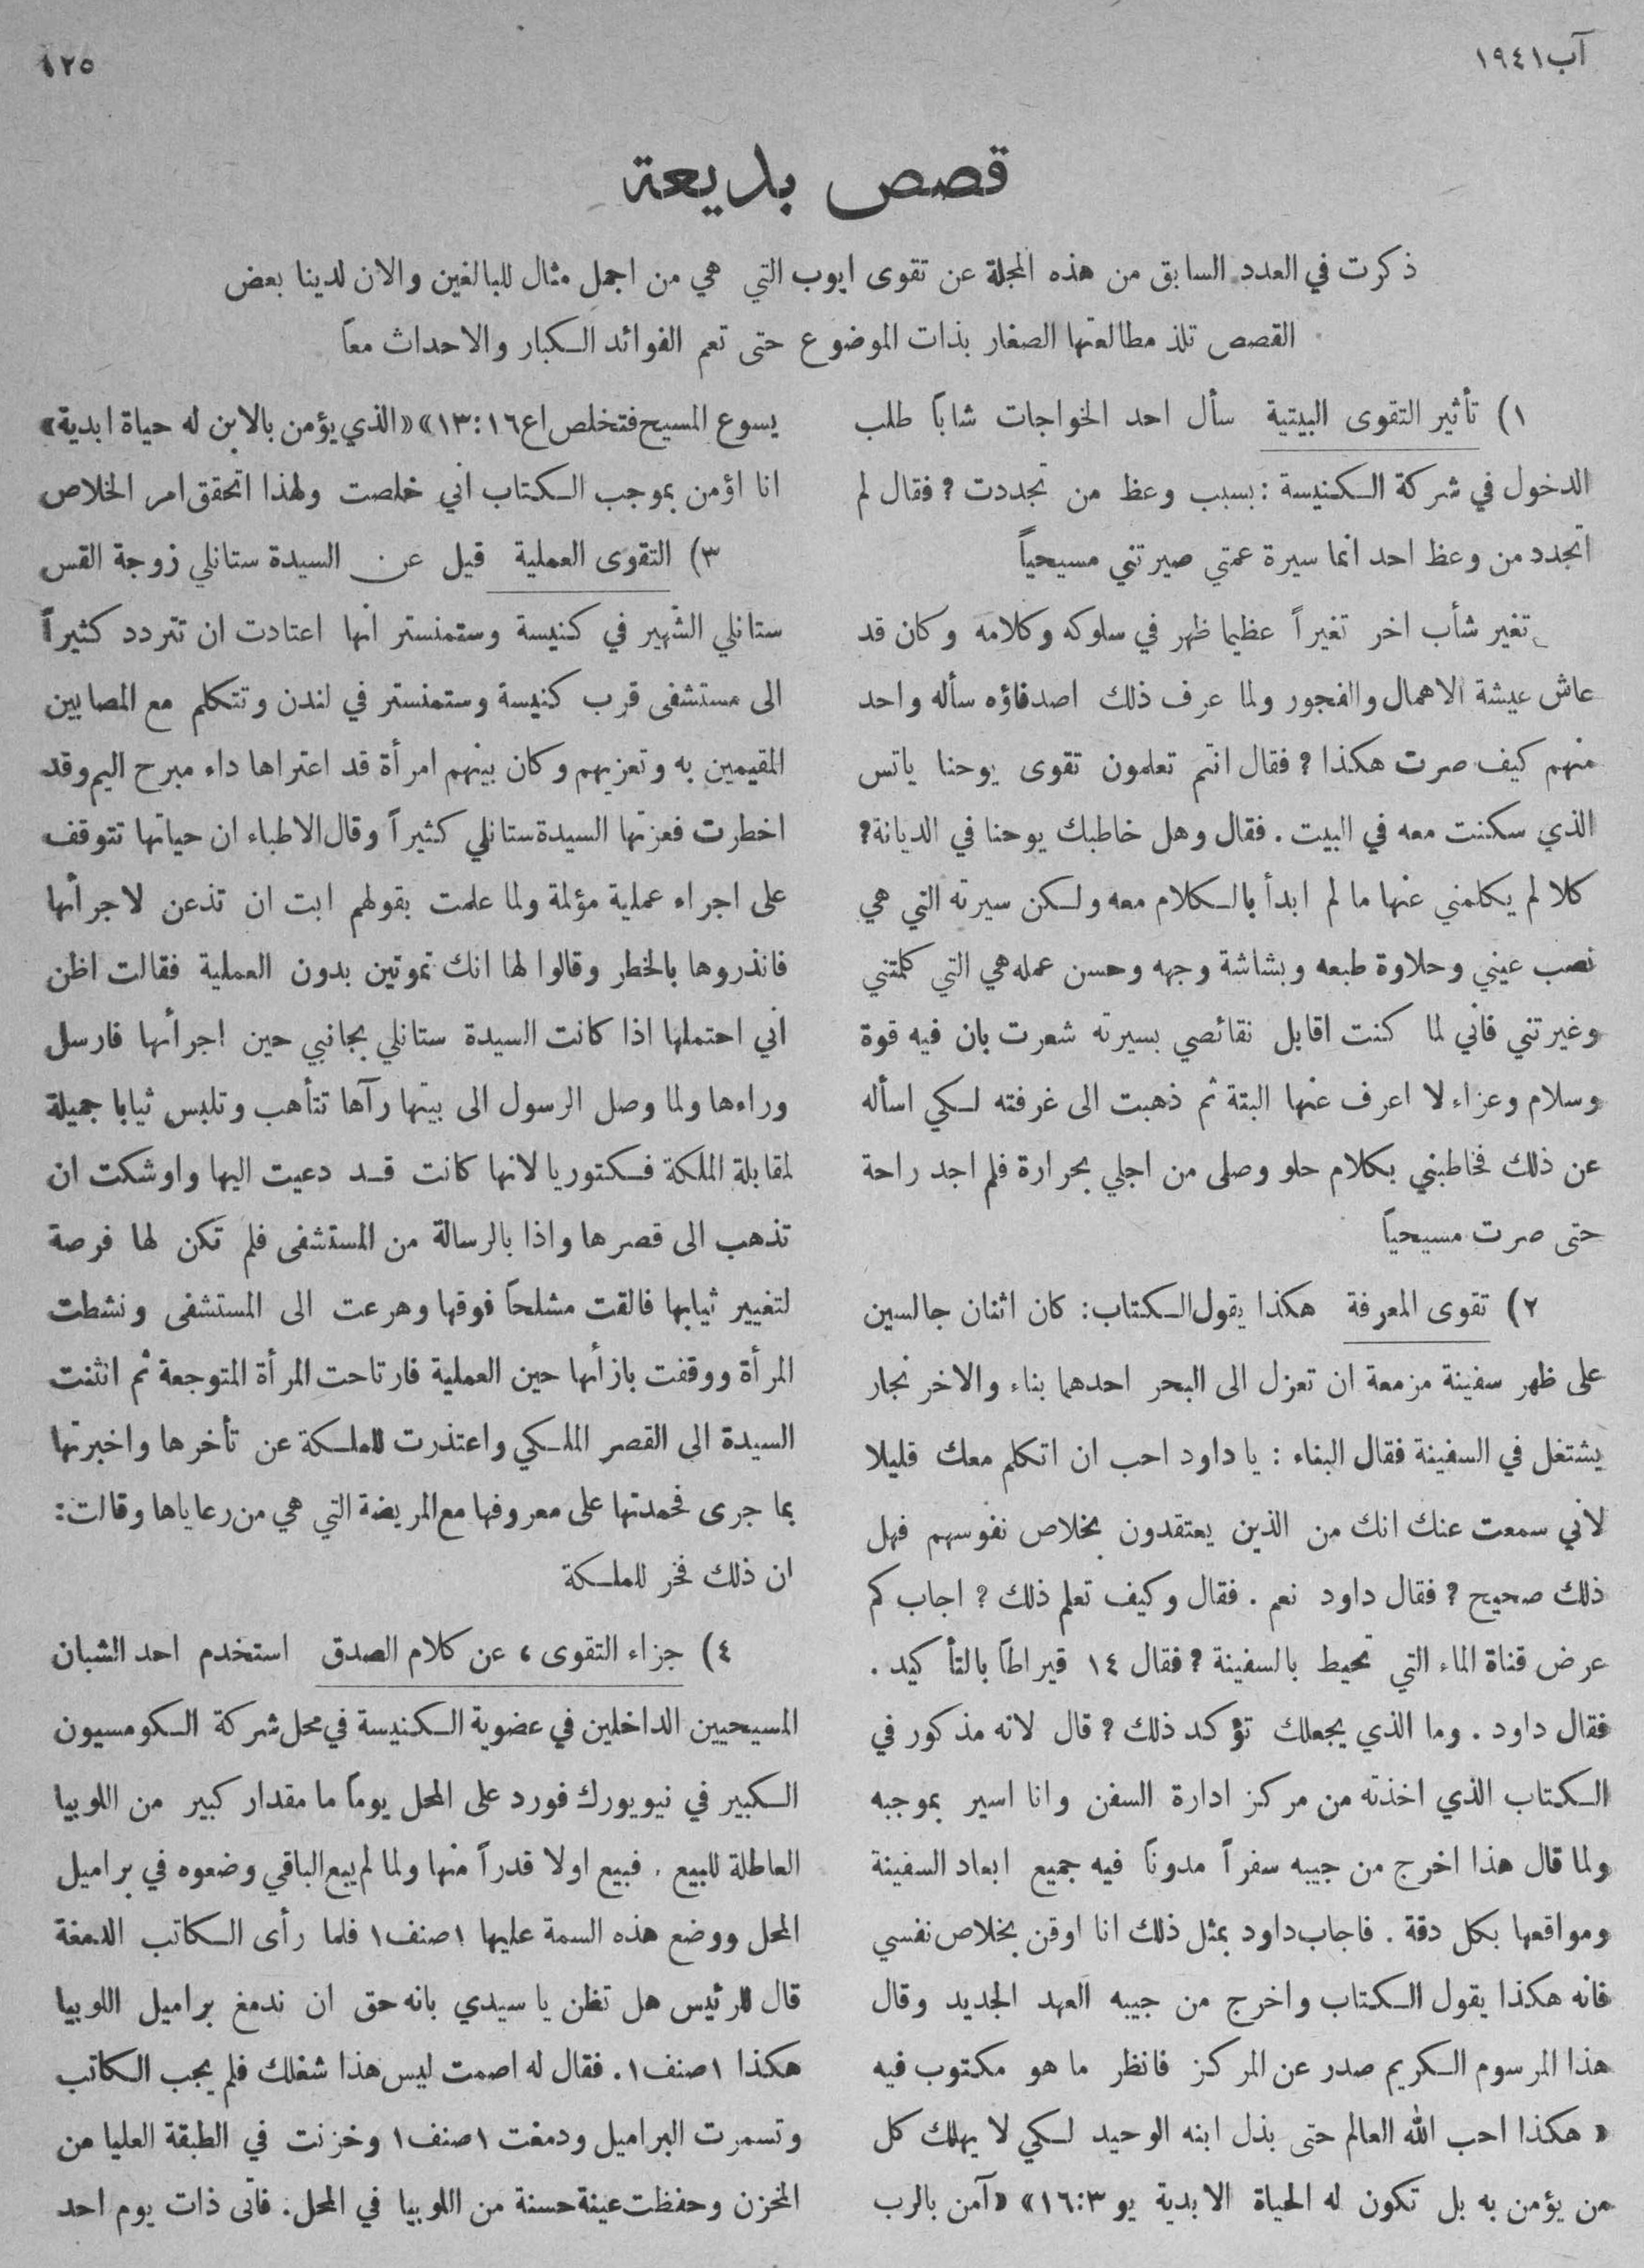 آب ١٩٤١
١٢٥
قصص بديعة
ذكرت في العدد السابق من هذه المجلة عن تقوى ايوب التي هي من اجمل مثال للبالغين والان لدينا بعض
القصص تلذ مطالعتها الصغار بذات الموضوع حتى تعم الفوائد الكبار والاحداث معاً
١) تأثير التقوى البيتية سأل احد الخواجات شاباً طلب
الدخول في شركة الكنيسة : بسبب وعظ من تجددت ؟ فقال لم
اتجدد من وعظ احد انما سيرة عمتي صيرتني مسيحياً
تغير شأب اخر تغيراً عظيما ظهر في سلوكه وكلامه وكان قد
عاش عيشة الاهمال والفجور ولما عرف ذلك اصدقاؤه سأله واحد
منهم كيف صرت هكذا ؟ فقال انتم تعلمون تقوى يوحنا ياتس
الذي سكنت معه في البيت . فقال وهل خاطبك يوحنا في الديانة ؟
كلا لم يكلمني عنها ما لم ابدأ بالكلام معه ولكن سيرته التي هي
نصب عيني وحلاوة طبعه وبشاشة وجهه وحسن عمله هي التي كلمتني
وغيرتني فاني لما كنت اقابل نقائصي بسيرته شعرت بان فيه قوة
وسلام وعزاء لا اعرف عنها البتة ثم ذهبت الى غرفته لكي اسأله
عن ذلك فخاطبني بكلام حلو وصلى من اجلي بحرارة فلم اجد راحة
حتى صرت مسيحياً
٢) تقوى المعرفة هكذا يقول الكتاب : كان اثنان جالسين
على ظهر سفينة مزمعة ان تعزل الى البحر احدهما بناء والاخر نجار
يشتغل في السفينة فقال البناء : يا داود احب ان اتكلم معك قليلا
لاني سمعت عنك انك من الذين يعتقدون بخلاص نفوسهم فهل
ذلك صحيح ؟ فقال داود نعم . فقال وكيف تعلم ذلك ؟ اجاب كم
عرض قناة الماء التي تحيط بالسفينة ؟ فقال ١٤ قيراطاً بالتأكيد .
فقال داود . وما الذي يجعلك تؤكد ذلك ؟ قال لانه مذكور في
الكتاب الذي اخذته من مركز ادارة السفن وانا اسير بموجبه
ولما قال هذا اخرج من جيبه سفراً مدوناً فيه جميع ابعاد السفينة
ومواقعها بكل دقة . فاجاب داود بمثل ذلك انا اوقن بخلاص نفسي
فانه هكذا يقول الكتاب واخرج من جيبه العهد الجديد وقال
هذا المرسوم الكريم صدر عن المركز فانظر ما هو مكتوب فيه
« هكذا احب الله العالم حتى بذل ابنه الوحيد لكي لا يهلك كل
من يؤمن به بل تكون له الحياة الابدية يو ٣:١٦» «آمن بالرب
يسوع المسيح فتخلص اع ١٦:١٣» «الذي يؤمن بالابن له حياة ابدية»
انا اؤمن بموجب الكتاب اني خلصت ولهذا اتحقق امر الخلاص
٣) التقوى العملية قيل عن السيدة ستانلي زوجة القس
ستانلي الشهير في كنيسة وستمنستر انها اعتادت ان تتردد كثيراً
الى مستشفى قرب كنيسة وستمنستر في لندن وتتكلم مع المصابين
المقيمين به وتعزيهم وكان بينهم امرأة قد اعتراها داء مبرح اليم وقد
اخطرت فعزتها السيدة ستانلي كثيراً وقال الاطباء ان حياتها تتوقف
على اجراء عملية مؤلمة ولما علمت بقولهم ابت ان تذعن لاجرأها
فانذروها بالخطر وقالوا لها انك تموتين بدون العملية فقالت اظن
اني احتملها اذا كانت السيدة ستانلي بجانبي حين اجرأها فارسل
وراءها ولما وصل الرسول الى بيتها رآها تتأهب وتلبس ثيابا جميلة
لمقابلة الملكة فكتوريا لانها كانت قد دعيت اليها واوشكت ان
تذهب الى قصرها واذا بالرسالة من المستشفى فلم تكن لها فرصة
لتغيير ثيابها فالقت مشلحاً فوقها وهرعت الى المستشفى ونشطت
المرأة ووقفت بازأها حين العملية فارتاحت المرأة المتوجعة ثم انثنت
السيدة الى القصر الملكي واعتذرت للملكة عن تأخرها واخبرتها
بما جرى فحمدتها على معروفها مع المريضة التي هي من رعاياها وقالت :
ان ذلك فخر للملكة
٤) جزاء التقوى ، عن كلام الصدق استخدم احد الشبان
المسيحيين الداخلين في عضوية الكنيسة في محل شركة الكومسيون
الكبير في نيويورك فورد على المحل يوماً ما مقدار كبير من اللوبيا
العاطلة للبيع . فبيع اولا قدراً منها ولما لم يبع الباقي وضعوه في براميل
المحل ووضع هذه السمة عليها ١ صنف ١ فلما رأى الكاتب الدمغة
قال للرئيس هل تظن يا سيدي بانه حق ان ندمغ براميل اللوبيا
هكذا ١ صنف ١ . فقال له اصمت ليس هذا شغلك فلم يجب الكاتب
وتسمرت البراميل ودمغت ١ صنف ١ وخزنت في الطبقة العليا من
المخزن وحفظت عينة حسنة من اللوبيا في المحل . فاتى ذات يوم احد